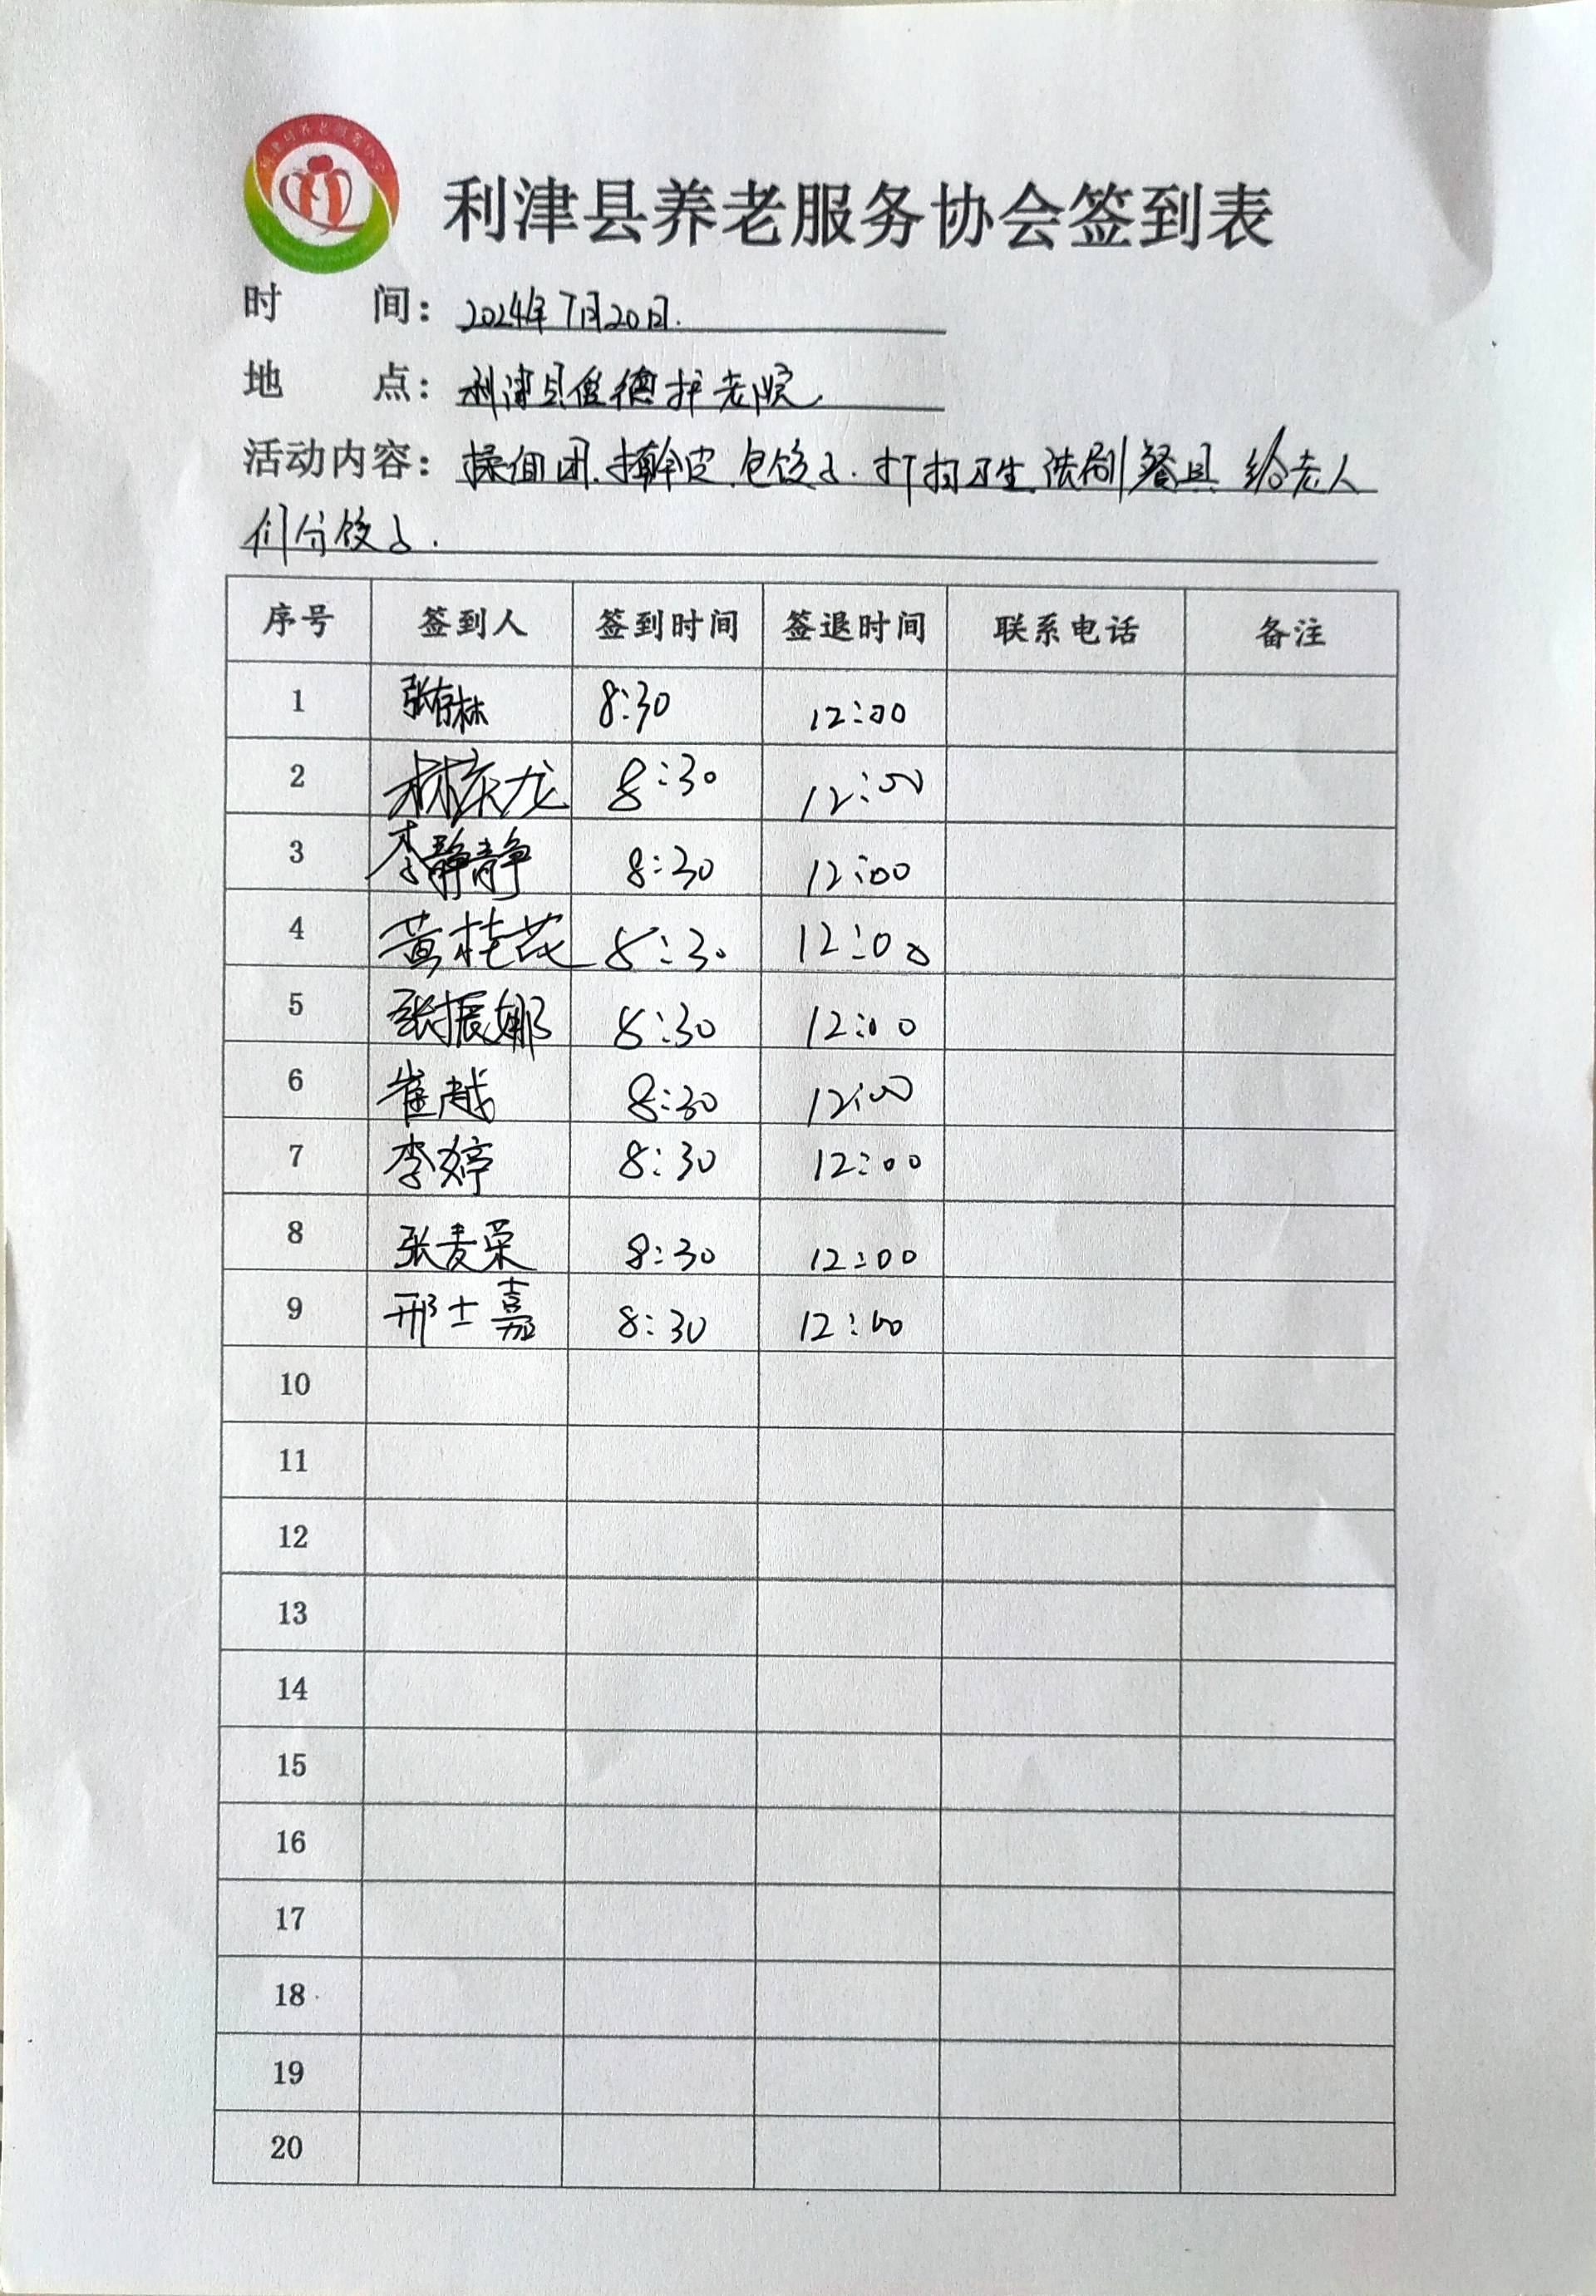 利津县养老服务协会签到表
时 间: 2024年7月20日.
地 点: 利津县俊德护老院
活动内容: 揉面团.擀皮.包饺子.打扫卫生.洗刷餐具 给老人
们分饺子.
序号 签到人 签到时间 签退时间 联系电话 备注
1 张存林 8:30 12:00
2 林庆龙 8:30 12:00
3 李静静 8:30 12:00
4 黄桂花 8:30 12:00
5 张振娜 8:30 12:00
6 崔越 8:30 12:00
7 李婷 8:30 12:00
8 张麦荣 8:30 12:00
9 邢士嘉 8:30 12:00
10
11
12
13
14
15
16
17
18
19
20